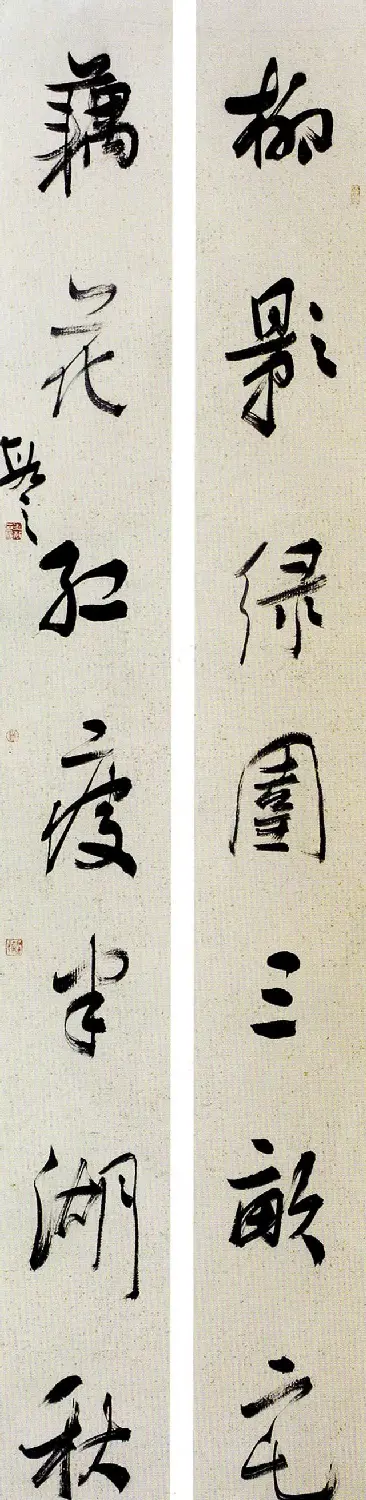 柳影绿圍三畝宅
藕花红瘦半湖秋